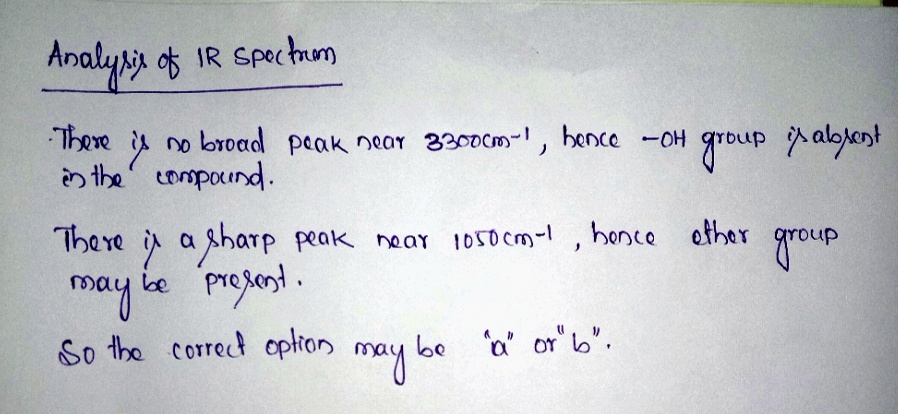 Analysis of IR Spectrum
There is no broad peak near 3300cm-1, hence -OH group is absent
in the compound.
There is a sharp peak near 1050cm-1, hence ether group
may be present.
So the correct option may be "a" or "b".